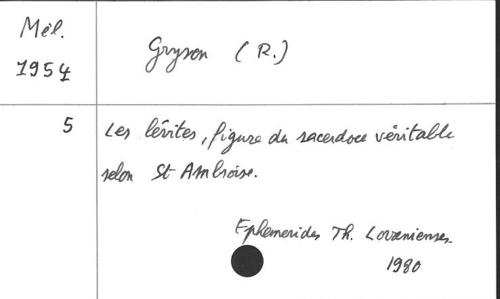 Mél.
1954
Gryson (R.)
5
Les lévites, figure du sacerdoce véritable
selon St Ambroise.
Ephemerides Th. Lovanienses.
1980